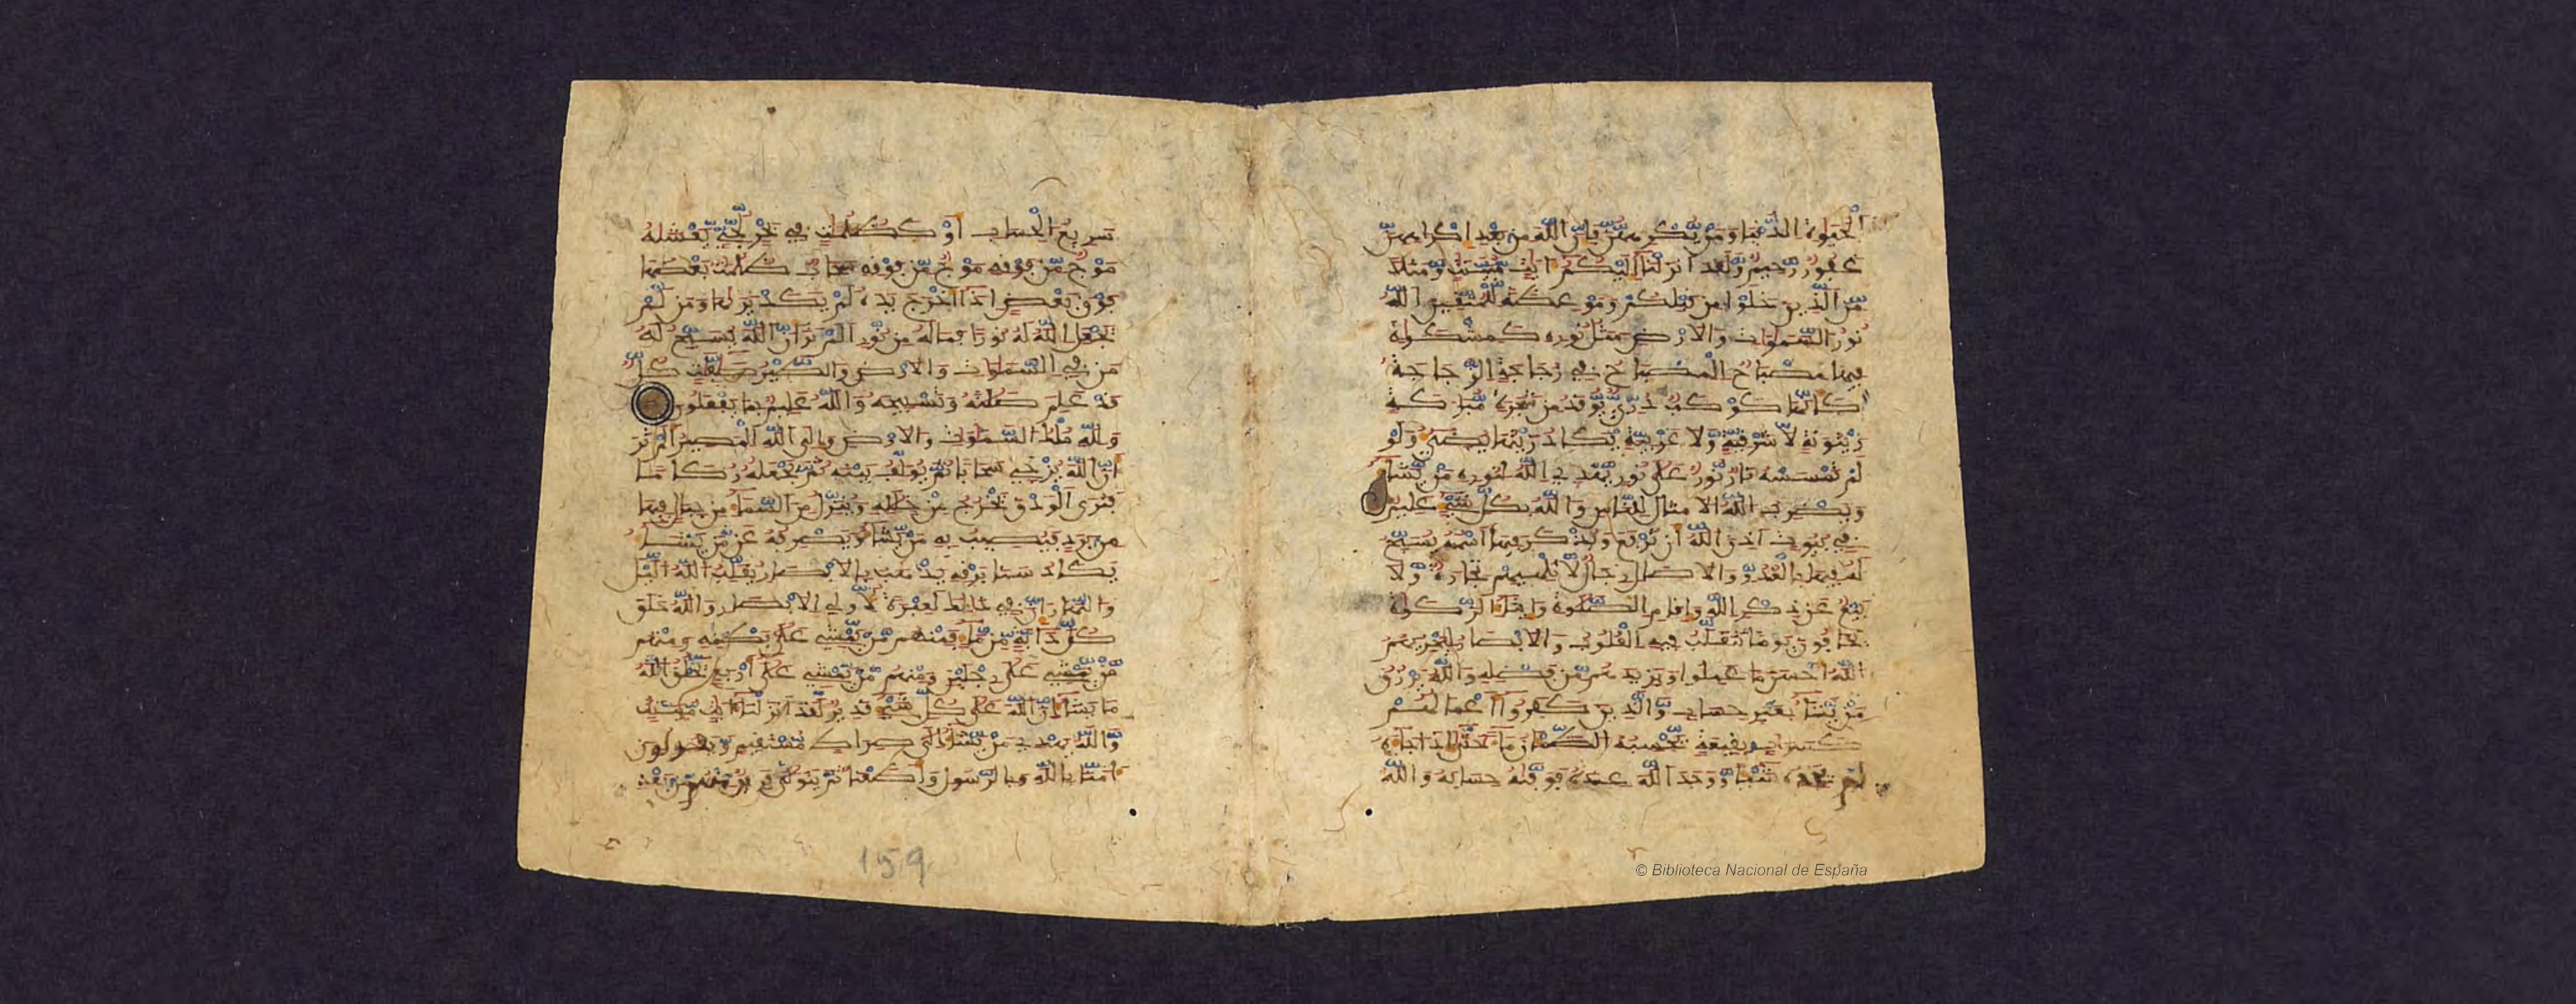 الحيوة الدنيا ومن يكرههن فإن الله من بعد اكراههن
غفور رحيم ولقد انزلنا اليكم ايت مبينت ومثلا
من الذين خلوا من قبلكم وموعظة للمتقين الله
نور السموات والارض مثل نوره كمشكوة
فيها مصباح المصباح في زجاجة الزجاجة
كانها كوكب دري يوقد من شجرة مبركة
زيتونة لا شرقية ولا غربية يكاد زيتها يضيء ولو
لم تمسسه نار نور على نور يهدي الله لنوره من يشا
ويضرب الله الامثال للناس والله بكل شيء عليم
في بيوت اذن الله ان ترفع ويذكر فيها اسمه يسبح
له فيها بالغدو والاصال رجال لا تلهيهم تجارة ولا
بيع عن ذكر الله واقام الصلوة وايتا الزكوة
يخافون يوما تتقلب فيه القلوب والابصار ليجزيهم
الله احسن ما عملوا ويزيدهم من فضله والله يرزق
من يشا بغير حساب والذين كفروا اعملهم
كسراب بقيعة يحسبه الظمان ما حتى اذا جاه
لم يجده شيا ووجد الله عنده فوفيه حسابه والله
سريع الحساب او كظلمت في بحر لجي يغشيه
موج من فوقه موج من فوقه سحاب ظلمت بعضها
فوق بعض اذا اخرج يده لم يكد يريها ومن لم
يجعل الله له نورا فما له من نور الم تر ان الله يسبح له
من في السموات والارض والطير صفت كل
قد علم صلته وتسبيحه والله عليم بما يفعلون
ولله ملك السموات والارض والى الله المصير الم تر
ان الله يزجي سحابا ثم يولف بينه ثم يجعله ركاما
فترى الودق يخرج من خلله وينزل من السما من جبال فيها
من برد فيصيب به من يشا ويصرفه عن من يشا
يكاد سنا برقه يذهب بالابصار يقلب الله اليل
والنهار ان في ذلك لعبرة لاولي الابصار والله خلق
كل دابة من ما فمنهم من يمشي على بطنه ومنهم
من يمشي على رجلين ومنهم من يمشي على اربع يخلق الله
ما يشا ان الله على كل شيء قدير لقد انزلنا ايت مبينت
والله يهدي من يشا الى صراط مستقيم ويقولون
امنا بالله وبالرسول واطعنا ثم يتولى فريق منهم من بعد
159
© Biblioteca Nacional de España